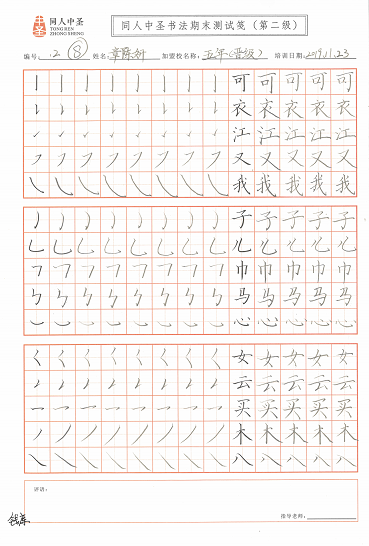 同人中圣
TONGREN
ZHONGSHENG
同人中圣书法期末测试笺（第二级）
编号: 12 ⑧ 姓名: 加盟校名称: 五年(晋级) 培训日期: 2019.11.23
可 可 可 可 可
衣 衣 衣 衣 衣
江 江 江 江 江
又 又 又 又 又
我 我 我 我 我
子 子 子 子 子
儿 儿 儿 儿 儿
巾 巾 巾 巾 巾
马 马 马 马 马
心 心 心 心 心
女 女 女 女 女
云 云 云 云 云
买 买 买 买 买
木 木 木 木 木
八 八 八 八 八
评语:
指导老师: